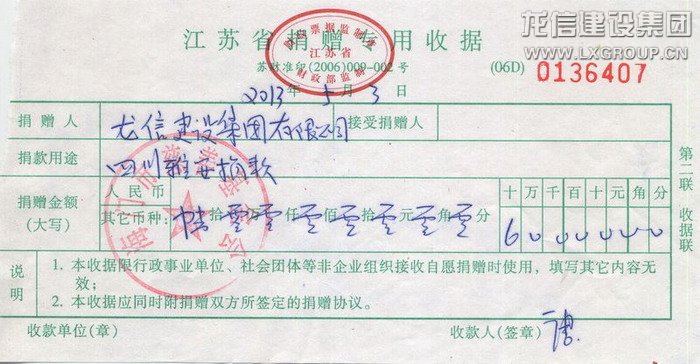 龙信建设集团
WWW.LXGROUP.CN
江苏省捐赠专用收据
财政票据监制章
江苏省
财政部监制
苏财准印(2006)009-002号
(06D) 0136407
2013年5月3日
捐赠人 龙信建设集团有限公司 接受捐赠人
捐款用途 四川雅安捐款
捐赠金额(大写) 人民币 其它币种: 陆拾零万零仟零佰零拾零元零角零分
十万千百十元角分
6000000
说明
1. 本收据限行政事业单位、社会团体等非企业组织接收自愿捐赠时使用,填写其它内容无
效;
2. 本收据应同时附捐赠双方所签定的捐赠协议。
收款单位(章) 收款人(签章)
第二联 收据联